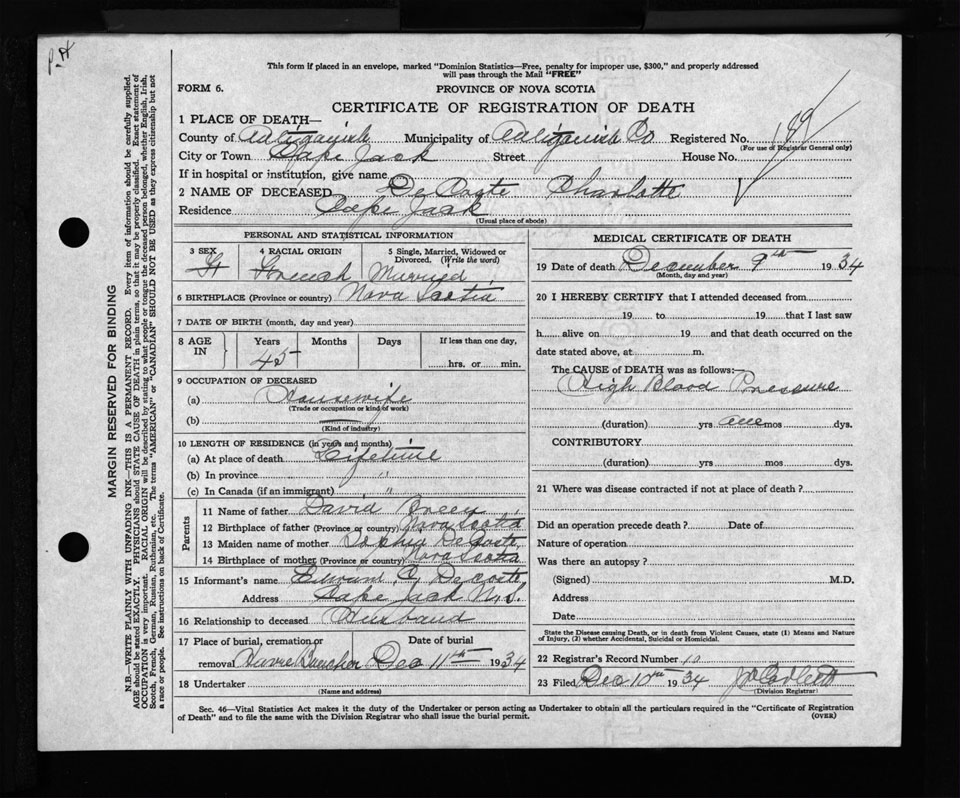 This form if placed in an envelope, marked "Dominion Statistics—Free, penalty for improper use, $300," and properly addressed
will pass through the Mail "FREE"
FORM 6. PROVINCE OF NOVA SCOTIA
CERTIFICATE OF REGISTRATION OF DEATH
1 PLACE OF DEATH—
County of Antigonish Municipality of Antigonish Co Registered No.
(For use of Registrar General only)
City or Town Cape Jack Street House No.
If in hospital or institution, give name
2 NAME OF DECEASED DeCoste Charlotte
Residence Cape Jack
(Usual place of abode)
PERSONAL AND STATISTICAL INFORMATION
3 SEX 4 RACIAL ORIGIN 5 Single, Married, Widowed or Divorced. (Write the word)
French Married
6 BIRTHPLACE (Province or country) Nova Scotia
7 DATE OF BIRTH (month, day and year)
8 AGE IN Years Months Days If less than one day,
45 hrs. or min.
9 OCCUPATION OF DECEASED
(a) Housewife
(Trade or occupation or kind of work)
(b)
(Kind of industry)
10 LENGTH OF RESIDENCE (in years and months)
(a) At place of death Lifetime
(b) In province "
(c) In Canada (if an immigrant) "
Parents
11 Name of father David
12 Birthplace of father (Province or country) Nova Scotia
13 Maiden name of mother Sophia DeCoste
14 Birthplace of mother (Province or country) Nova Scotia
15 Informant's name DeCoste
Address Cape Jack N.S.
16 Relationship to deceased Husband
17 Place of burial, cremation or Date of burial
removal Havre Boucher Dec 11th 1934
18 Undertaker
(Name and address)
MEDICAL CERTIFICATE OF DEATH
19 Date of death December 9th 1934
(Month, day and year)
20 I HEREBY CERTIFY that I attended deceased from
19 to 19 that I last saw
h alive on 19 and that death occurred on the
date stated above, at m.
The CAUSE of DEATH was as follows:—
High Blood Pressure
(duration) yrs one mos dys.
CONTRIBUTORY
(duration) yrs mos dys.
21 Where was disease contracted if not at place of death?
Did an operation precede death? Date of
Nature of operation
Was there an autopsy?
(Signed) M.D.
Address
Date
State the Disease causing Death, or in death from Violent Causes, state (1) Means and Nature
of Injury, (2) whether Accidental, Suicidal or Homicidal.
22 Registrar's Record Number 10
23 Filed Dec 10th 1934
(Division Registrar)
Sec. 46—Vital Statistics Act makes it the duty of the Undertaker or person acting as Undertaker to obtain all the particulars required in the "Certificate of Registration
of Death" and to file the same with the Division Registrar who shall issue the burial permit. (OVER)
MARGIN RESERVED FOR BINDING
N.B.—WRITE PLAINLY WITH UNFADING INK—THIS IS A PERMANENT RECORD. Every item of information should be carefully supplied.
AGE should be stated EXACTLY. PHYSICIANS should STATE CAUSE OF DEATH in plain terms, so that it may be properly classified. Exact statement of
OCCUPATION is very important. RACIAL ORIGIN will be described by stating to what people or tongue the deceased person belonged, whether English, Irish,
Scotch, French, German, Russian, Ruthenian, etc. The terms "AMERICAN" or "CANADIAN" SHOULD NOT BE USED as they express citizenship but not
a race or people. See instructions on back of Certificate.